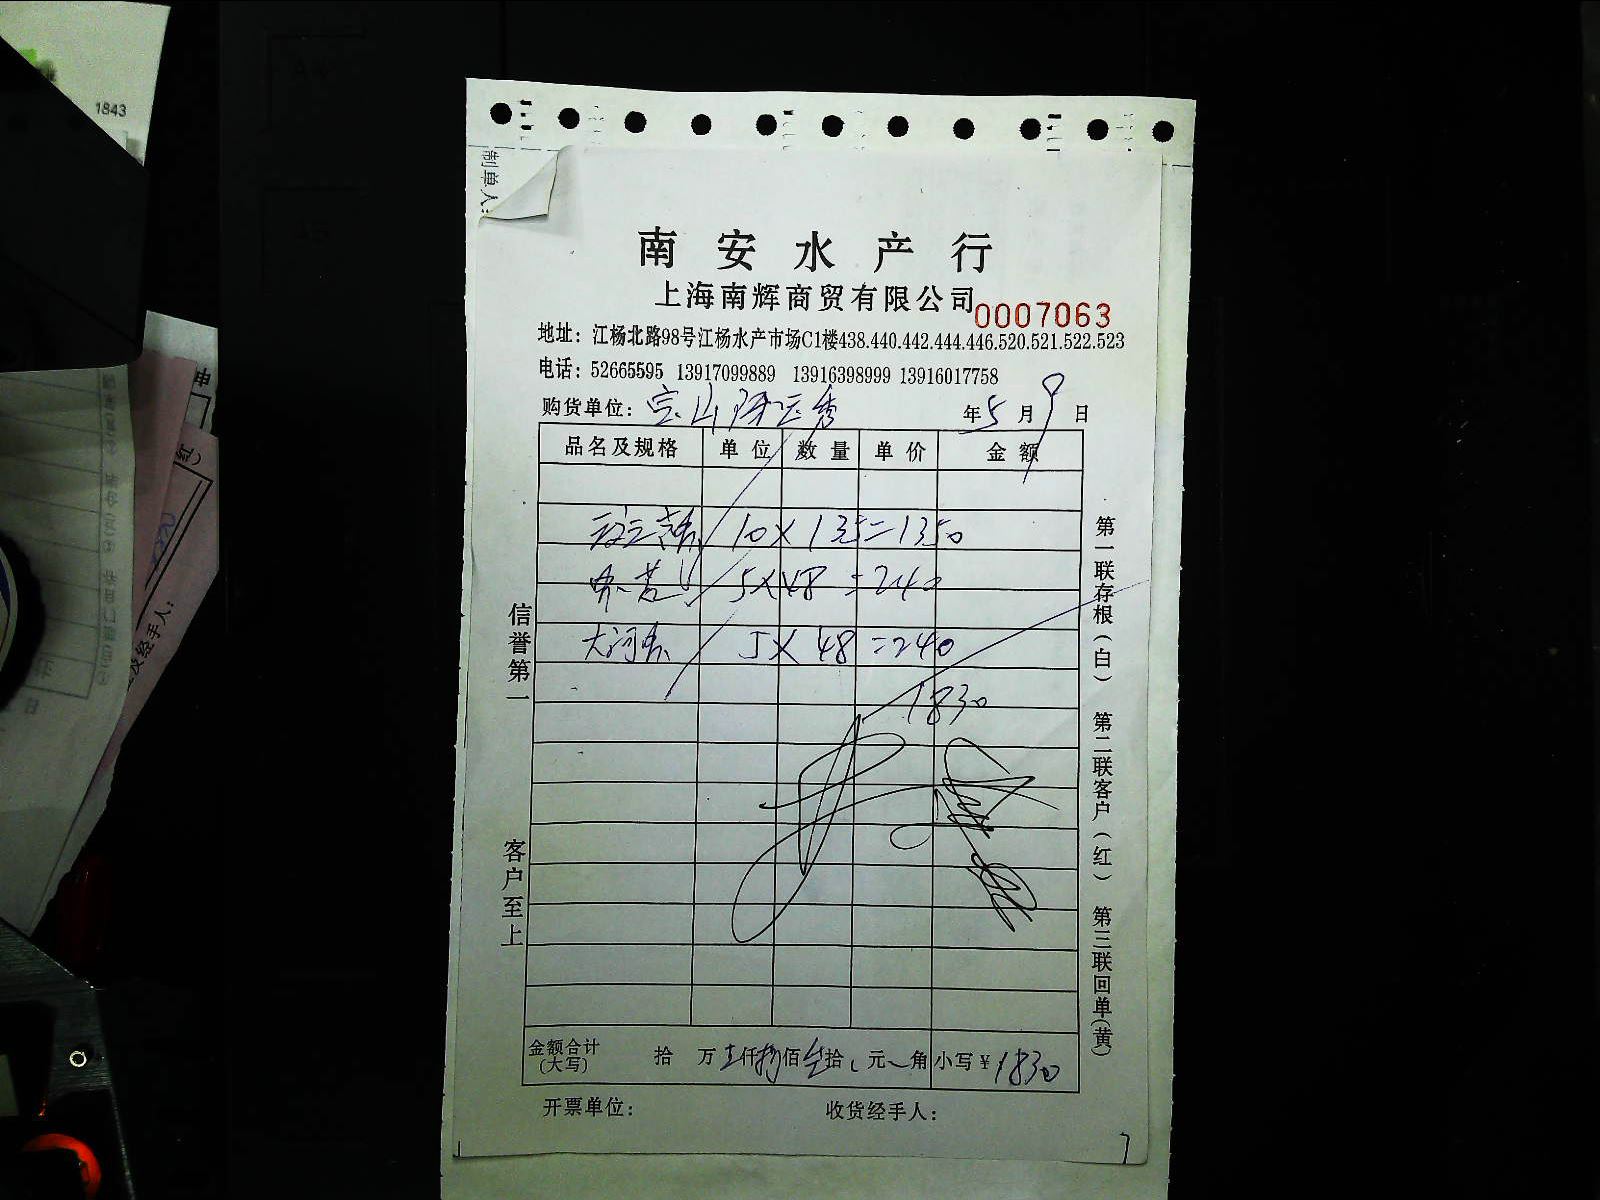 1843
制单人:
南安水产行
上海南辉商贸有限公司 0007063
地址: 江杨北路98号江杨水产市场C1楼438.440.442.444.446.520.521.522.523
电话: 52665595 13917099889 13916398999 13916017758
购货单位: 宝山 秀 年5月9日
品名及规格 单位 数量 单价 金额
10×135=1350
5×48=240
大河 5×48=240
1830
金额合计(大写) 拾 万壹仟捌佰叁拾 元 角 小写¥1830
开票单位: 收货经手人:
信誉第一
客户至上
第一联存根(白) 第二联客户(红) 第三联回单(黄)